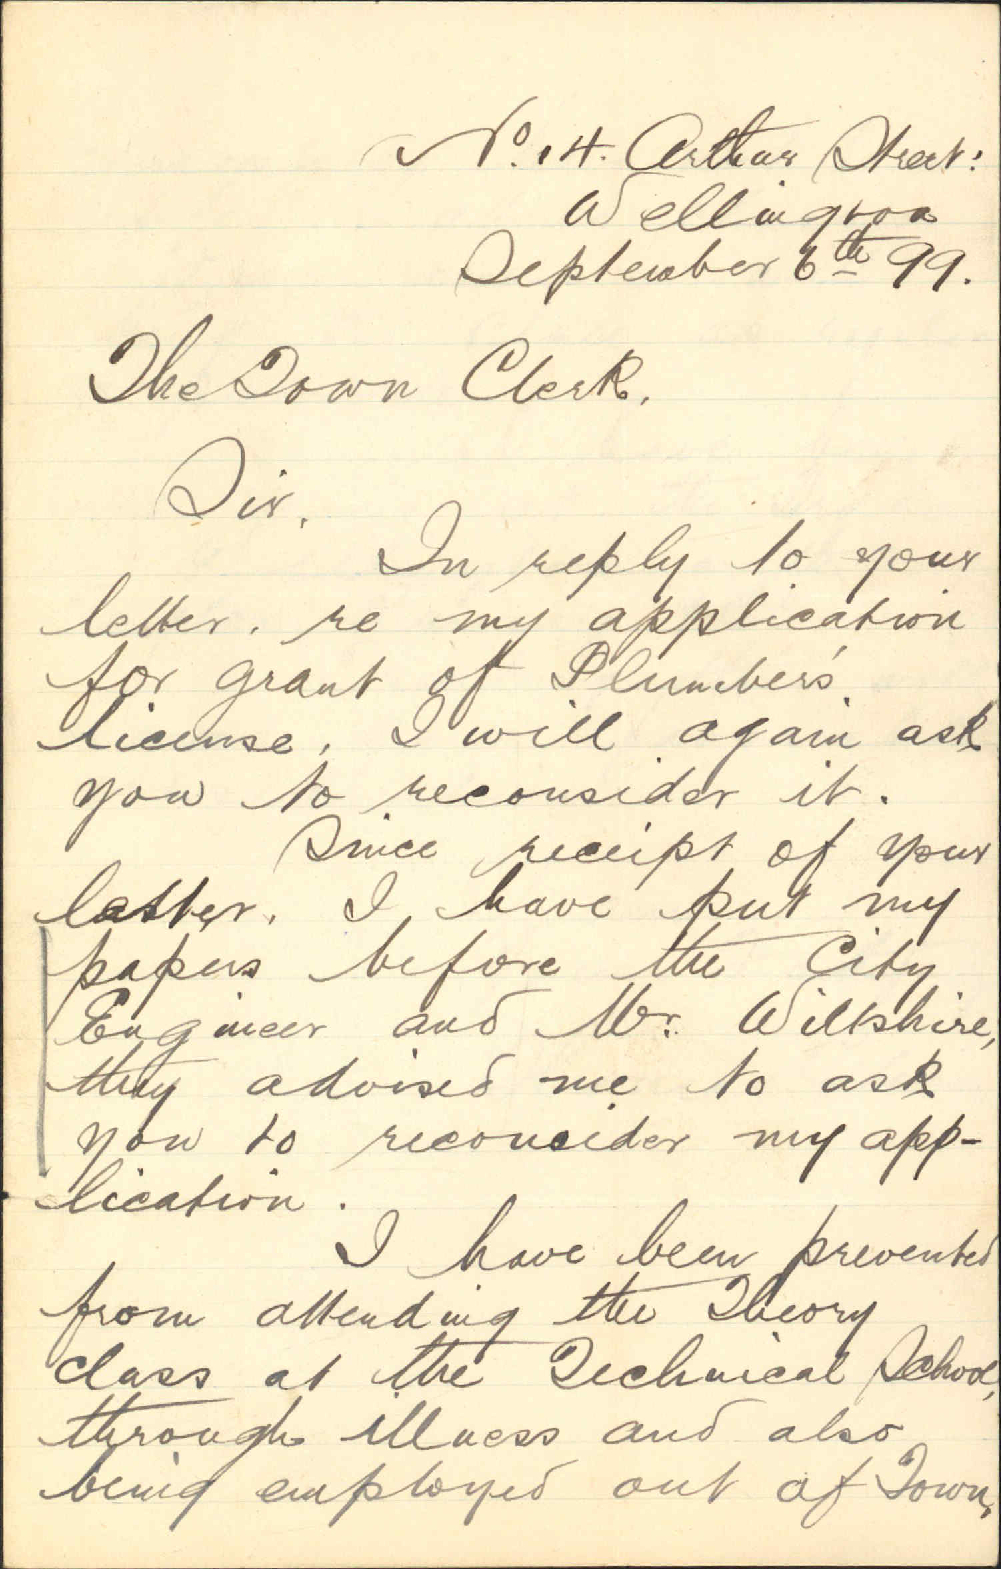 No. 14. Arthur Street:
Wellington
September 6th 99.
The Town Clerk.
Sir,
In reply to your
letter. re my application
for grant of Plumber's
license, I will again ask
you to reconsider it.
Since receipt of your
latter, I have put my
papers before the City
Engineer and Mr. Wiltshire,
they advised me to ask
you to reconsider my app-
lication.
I have been prevented
from attending the Theory
class at the Technical School,
through illness and also
being employed out of Town,